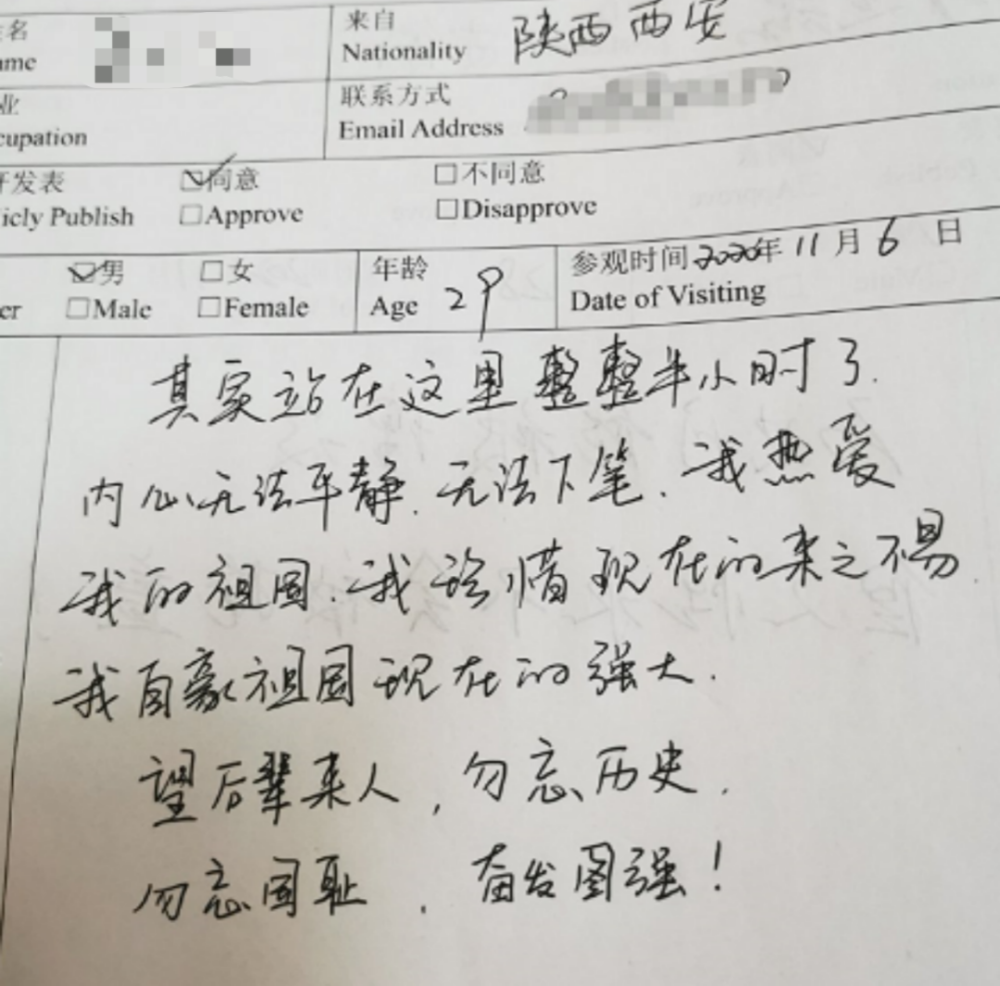 名 来自 陕西西安
ame Nationality
业 联系方式
cupation Email Address
发表 同意 不同意
icly Publish Approve Disapprove
男 女 年龄 29 参观时间 2020年 11 月 6 日
er Male Female Age Date of Visiting
其实站在这里整整半小时了.
内心无法平静.无法下笔.我热爱
我的祖国.我珍惜现在的来之不易
我自豪祖国现在的强大.
望后辈来人,勿忘历史.
勿忘国耻,奋发图强!